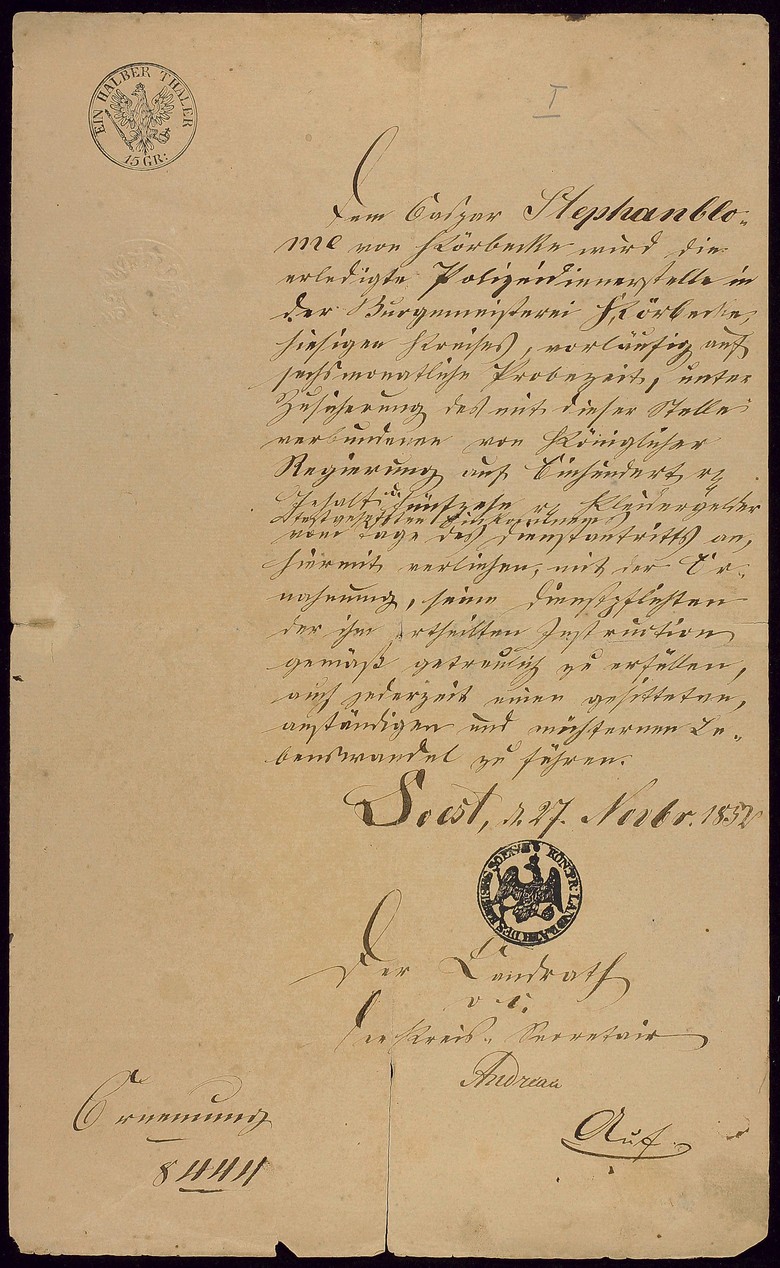 EIN HALBER THALER
15 GR:
I
Dem Caspar Stephanblo-
me von Körbecke wird die
erledigte Polizeidienerstelle in
der Burgemeisterei Körbecke,
hiesigen Kreises, vorläufig auf
sechsmonatliche Probezeit, unter
Zusicherung des mit dieser Stelle
verbundenen von Königlicher
Regierung auf Einhundert rt
Gehalt u. fünfzehn rt Kleidergelder
festgesetzten Einkommens
vom Tage des Dienstantritts an,
hiermit verliehen, mit der Er-
mahnung, seine Dienstpflichten
der ihm ertheilten Instruction
gemäß getreulich zu erfüllen,
auch jederzeit einen gesitteten,
anständigen und nüchternen Le-
benswandel zu führen.
Soest, d. 27. Novbr. 1852
KÖN: PR: LANDRATH DES KREISES SOEST
Der Landrath
Der Kreis-Secretair
Ernennung
8444